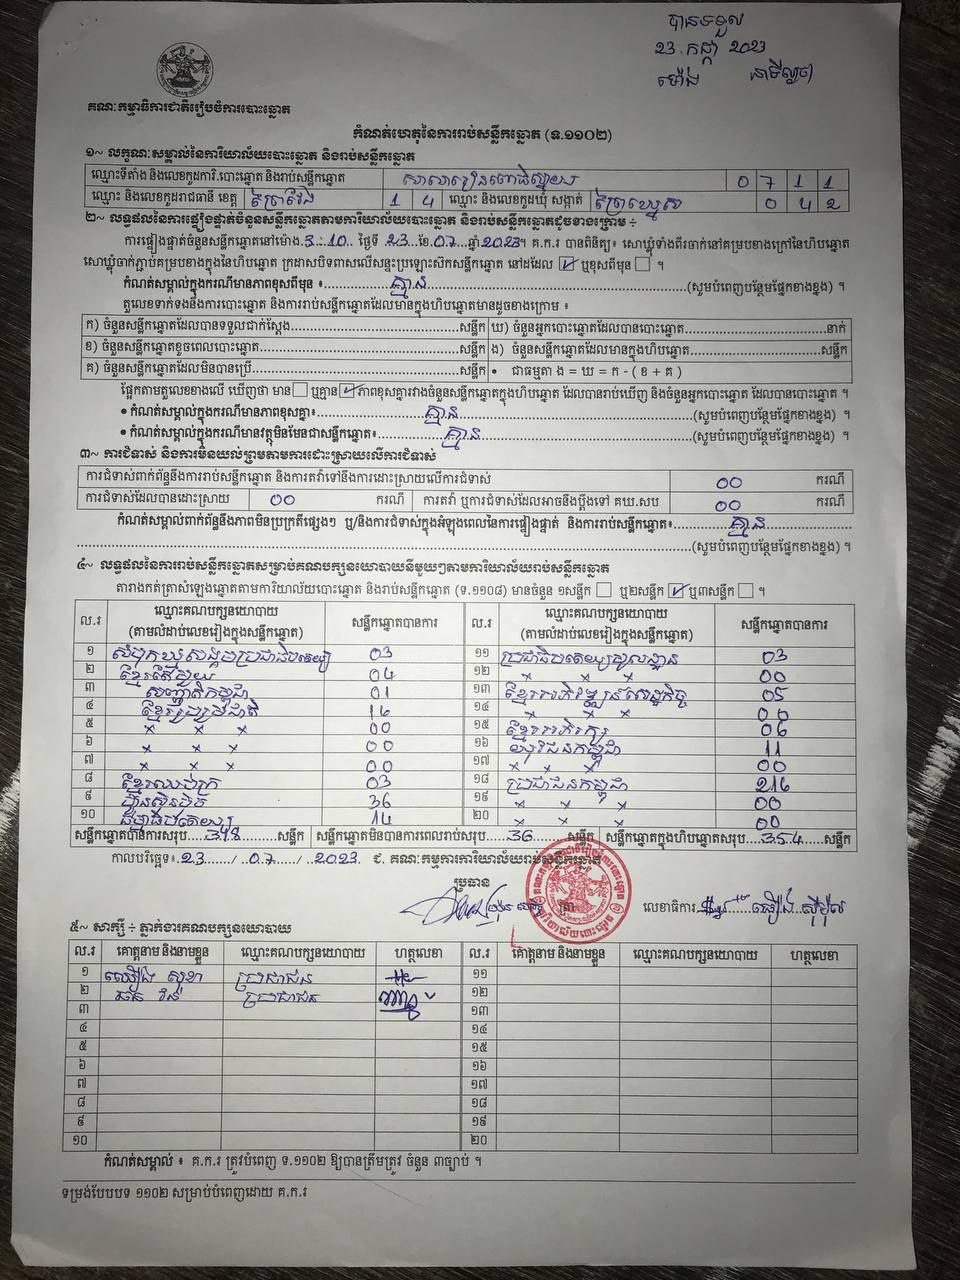 បានទទួល
23.កក្កដា 2023
ម៉ោង នាទីល្ងាច
គណៈកម្មាធិការជាតិរៀបចំការបោះឆ្នោត
កំណត់ហេតុនៃការរាប់សន្លឹកឆ្នោត (ទ.១១០២)
១~ លក្ខណៈសម្គាល់នៃការិយាល័យបោះឆ្នោត និងរាប់សន្លឹកឆ្នោត
ឈ្មោះទីតាំង និងលេខកូដការិ.បោះឆ្នោត និងរាប់សន្លឹកឆ្នោត សាលារៀនពោធិស្វាយ 0 7 1 1
ឈ្មោះ និងលេខកូដរាជធានី ខេត្ត ព្រៃវែង 1 4 ឈ្មោះ និងលេខកូដឃុំ សង្កាត់ ព្រៃឃ្នេស 0 4 2
២~ លទ្ធផលនៃការផ្ទៀងផ្ទាត់ចំនួនសន្លឹកឆ្នោតតាមការិយាល័យបោះឆ្នោត និងរាប់សន្លឹកឆ្នោតដូចខាងក្រោម ÷
ការផ្ទៀងផ្ទាត់ចំនួនសន្លឹកឆ្នោតនៅម៉ោង 3:10 ថ្ងៃទី 23 ខែ 07 ឆ្នាំ 2023។ គ.ក.រ បានពិនិត្យ៖ សោឃ្លុំទាំងពីរចាក់នៅគម្របខាងក្រៅនៃហិបឆ្នោត
សោឃ្លុំចាក់ភ្ជាប់គម្របខាងក្នុងនៃហិបឆ្នោត ក្រដាសបិទពាសលើសន្ទះប្រឡោះសិកសន្លឹកឆ្នោត នៅដដែល ☑ ឬខុសពីមុន ☐ ។
កំណត់សម្គាល់ក្នុងករណីមានភាពខុសពីមុន ៖ គ្មាន (សូមបំពេញបន្ថែមផ្នែកខាងខ្នង) ។
តួលេខទាក់ទងនឹងការបោះឆ្នោត និងការរាប់សន្លឹកឆ្នោតដែលមានក្នុងហិបឆ្នោតមានដូចខាងក្រោម ៖
ក) ចំនួនសន្លឹកឆ្នោតដែលបានទទួលជាក់ស្តែង........សន្លឹក ឃ) ចំនួនអ្នកបោះឆ្នោតដែលបានបោះឆ្នោត........នាក់
ខ) ចំនួនសន្លឹកឆ្នោតខូចពេលបោះឆ្នោត........សន្លឹក ង) ចំនួនសន្លឹកឆ្នោតដែលមានក្នុងហិបឆ្នោត........សន្លឹក
គ) ចំនួនសន្លឹកឆ្នោតដែលមិនបានប្រើ........សន្លឹក • ជាធម្មតា ង = ឃ = ក - ( ខ + គ )
ផ្អែកតាមតួលេខខាងលើ ឃើញថា មាន ☐ ឬគ្មាន ☑ ភាពខុសគ្នារវាងចំនួនសន្លឹកឆ្នោតក្នុងហិបឆ្នោត ដែលបានរាប់ឃើញ និងចំនួនអ្នកបោះឆ្នោត ដែលបានបោះឆ្នោត ។
• កំណត់សម្គាល់ក្នុងករណីមានភាពខុសគ្នា៖ គ្មាន (សូមបំពេញបន្ថែមផ្នែកខាងខ្នង) ។
• កំណត់សម្គាល់ក្នុងករណីមានវត្ថុមិនមែនជាសន្លឹកឆ្នោត៖ គ្មាន (សូមបំពេញបន្ថែមផ្នែកខាងខ្នង) ។
៣~ ការជំទាស់ និងការមិនយល់ព្រមតាមការដោះស្រាយលើការជំទាស់
ការជំទាស់ពាក់ព័ន្ធនឹងការរាប់សន្លឹកឆ្នោត និងការតវ៉ាទៅនឹងការដោះស្រាយលើការជំទាស់ 00 ករណី
ការជំទាស់ដែលបានដោះស្រាយ 00 ករណី ការតវ៉ា ឬការជំទាស់ដែលអាចនឹងប្តឹងទៅ គឃ.សប 00 ករណី
កំណត់សម្គាល់ពាក់ព័ន្ធនឹងភាពមិនប្រក្រតីផ្សេងៗ ឬ/និងការជំទាស់ក្នុងអំឡុងពេលនៃការផ្ទៀងផ្ទាត់ និងការរាប់សន្លឹកឆ្នោត៖ គ្មាន
(សូមបំពេញបន្ថែមផ្នែកខាងខ្នង) ។
៤~ លទ្ធផលនៃការរាប់សន្លឹកឆ្នោតសម្រាប់គណបក្សនយោបាយនីមួយៗតាមការិយាល័យរាប់សន្លឹកឆ្នោត
តារាងកត់ត្រាសំឡេងឆ្នោតតាមការិយាល័យបោះឆ្នោត និងរាប់សន្លឹកឆ្នោត (ទ.១១០៨) មានចំនួន ១សន្លឹក ☐ ឬ២សន្លឹក ☑ ឬ៣សន្លឹក ☐ ។
ល.រ ឈ្មោះគណបក្សនយោបាយ (តាមលំដាប់លេខរៀងក្នុងសន្លឹកឆ្នោត) សន្លឹកឆ្នោតបានការ ល.រ ឈ្មោះគណបក្សនយោបាយ (តាមលំដាប់លេខរៀងក្នុងសន្លឹកឆ្នោត) សន្លឹកឆ្នោតបានការ
១ សំបុកឃ្មុំសង្គមប្រជាធិបតេយ្យ 03 ១១ ប្រជាធិបតេយ្យមូលដ្ឋាន 03
២ ខ្មែរតែមួយ 04 ១២ × × × 00
៣ សញ្ជាតិកម្ពុជា 01 ១៣ ខ្មែរអភិវឌ្ឍន៍សេដ្ឋកិច្ច 05
៤ ខ្មែររួបរួមជាតិ 16 ១៤ × × × 00
៥ × × × 00 ១៥ ខ្មែរអភិរក្ស 06
៦ × × × 00 ១៦ យុវជនកម្ពុជា 11
៧ × × × 00 ១៧ × × × 00
៨ ខ្មែរឈប់ក្រ 03 ១៨ ប្រជាជនកម្ពុជា 216
៩ ហ្វ៊ុនស៊ិនប៉ិច 36 ១៩ × × × 00
១០ ធម្មាធិបតេយ្យ 14 ២០ × × × 00
សន្លឹកឆ្នោតបានការសរុប 318 សន្លឹក សន្លឹកឆ្នោតមិនបានការពេលរាប់សរុប 36 សន្លឹក សន្លឹកឆ្នោតក្នុងហិបឆ្នោតសរុប 354 សន្លឹក
កាលបរិច្ឆេទ៖ 23 / 07 / 2023 ជ. គណៈកម្មការការិយាល័យរាប់សន្លឹកឆ្នោត
ប្រធាន
ត្រា លេខាធិការ
៥~ សាក្សី ÷ ភ្នាក់ងារគណបក្សនយោបាយ
ល.រ គោត្តនាម និងនាមខ្លួន ឈ្មោះគណបក្សនយោបាយ ហត្ថលេខា ល.រ គោត្តនាម និងនាមខ្លួន ឈ្មោះគណបក្សនយោបាយ ហត្ថលេខា
១ ឈឿង សុខា ប្រជាជន ១១
២ ប្រជាជន ១២
៣ ១៣
៤ ១៤
៥ ១៥
៦ ១៦
៧ ១៧
៨ ១៨
៩ ១៩
១០ ២០
កំណត់សម្គាល់ ៖ គ.ក.រ ត្រូវបំពេញ ទ.១១០២ ឱ្យបានត្រឹមត្រូវ ចំនួន ៣ច្បាប់ ។
ទម្រង់បែបបទ ១១០២ សម្រាប់បំពេញដោយ គ.ក.រ